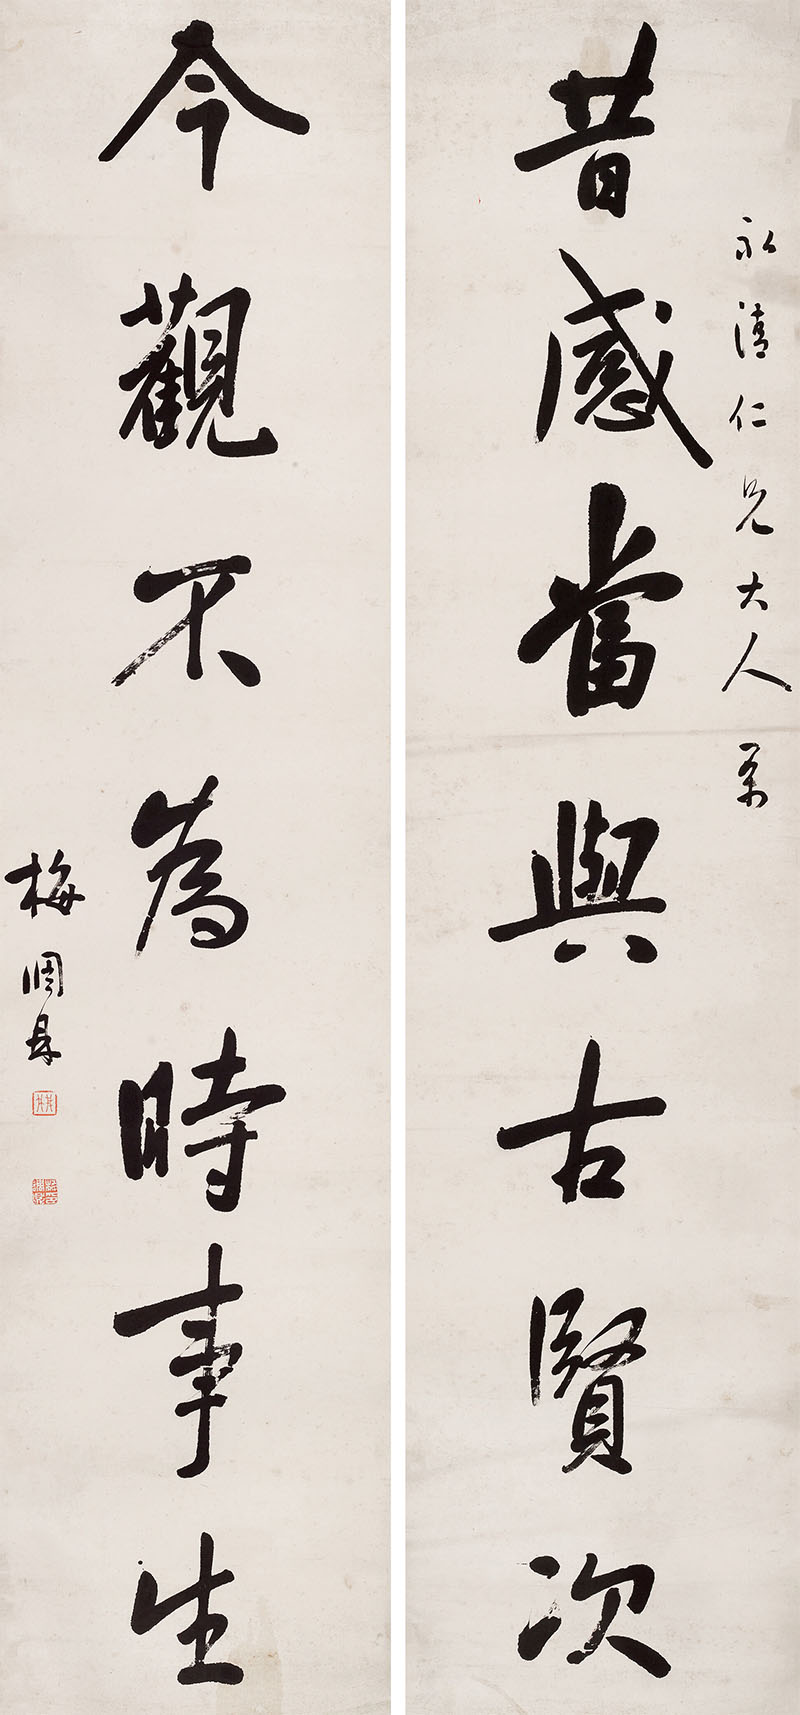 永清仁兄大人属
昔感當與古賢次
今觀不為時事生
梅調鼎